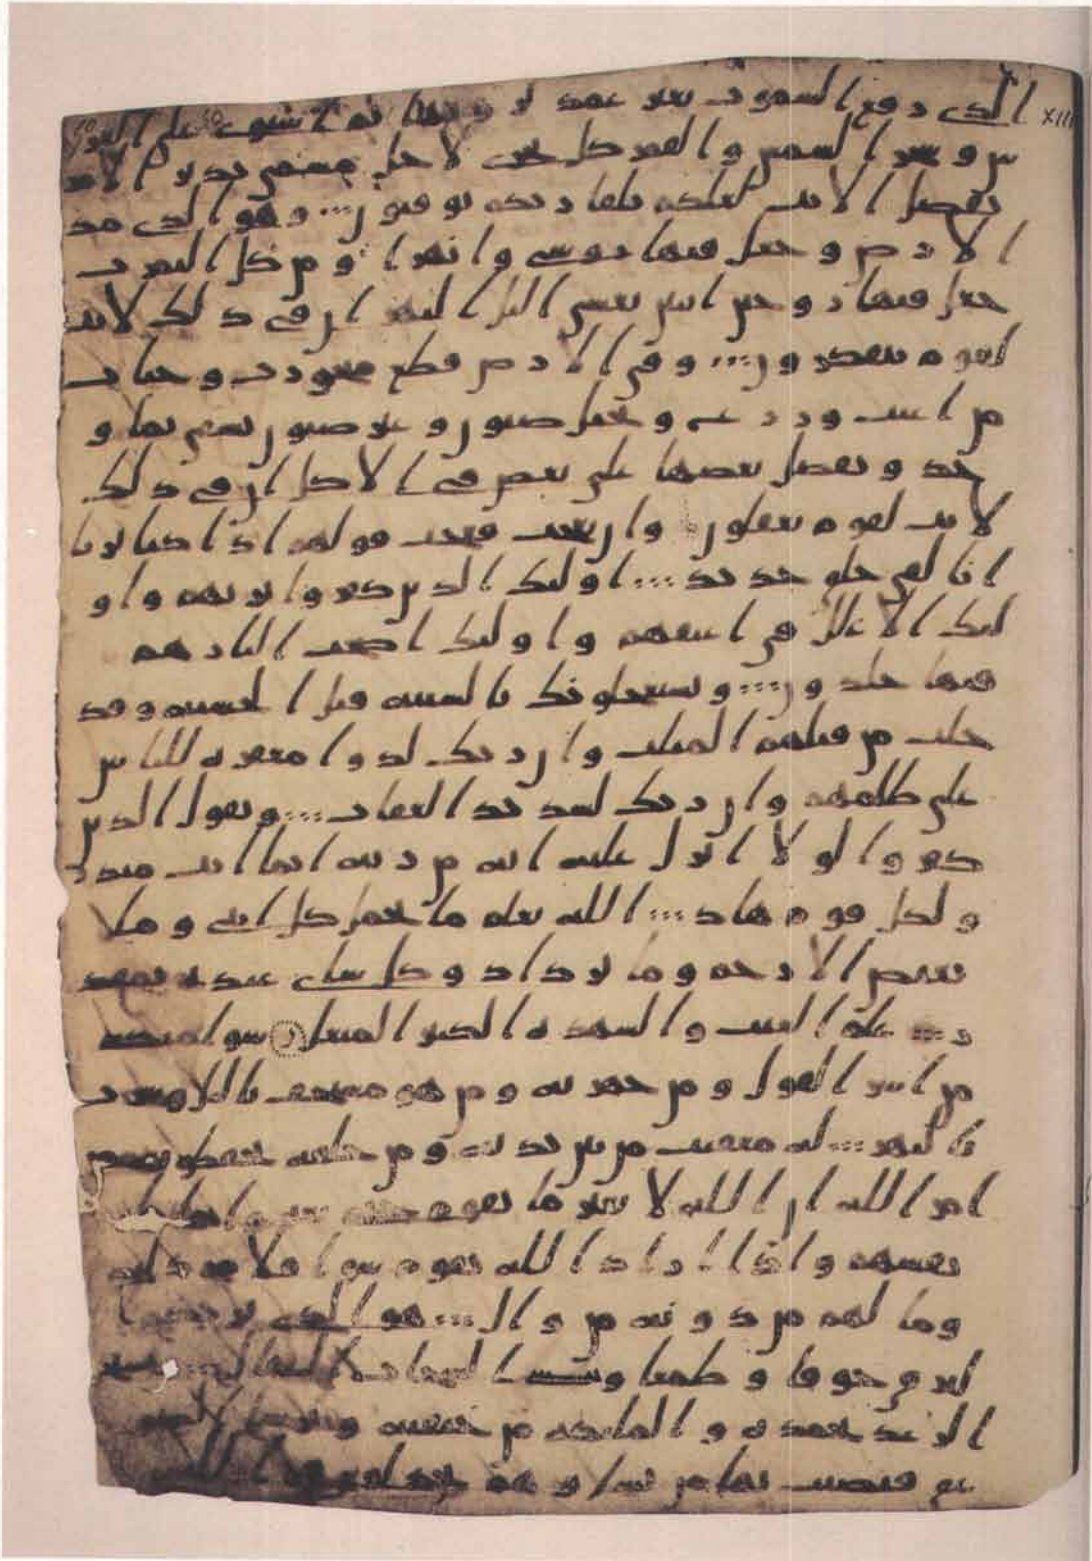 الذى رفع السموت بغير عمد ترونها ثم استوى على العر
ش وسخر الشمس والقمر كل يجرى لاجل مسمى يدبر الامر
يفصل الايت لعلكم بلقا ربكم توقنون وهو الذى مد
الارض وجعل فيها روسى وانهرا ومن كل الثمرت
جعل فيها زوجين اثنين يغشى اليل النهر ان فى ذلك لايت
لقوم يتفكرون وفى الارض قطع متجورت وجنات
من اعنب وزرع ونخيل صنون وغير صنون تسقى بما و
حد ونفضل بعضها على بعض فى الاكل ان فى ذلك
لايت لقوم يعقلون وان تعجب فعجب قولهم اذا كنا تربا
انا لفى خلق جديد اوليك الذين كفروا بربهم واو
ليك الاغلل فى اعنقهم واوليك اصحب النار هم
فيها خلدون ويستعجلونك بالسيئة قبل الحسنة وقد
خلت من قبلهم المثلت وان ربك لذوا مغفرة للناس
على ظلمهم وان ربك لشديد العقاب ويقول الذين
كفروا لولا انزل عليه اية من ربه انما انت منذر
ولكل قوم هاد الله يعلم ما تحمل كل انثى وما
تغيض الارحم وما تزداد وكل شاى عنده بمقد
ر علم الغيب والشهدة الكبير المتعل سوا منكم
من اسر القول ومن جهر به ومن هو مستخف باليل وسرب
بالنهر له معقبت من بين يديه ومن خلفه يحفظونه من
امر الله ان الله لا يغير ما بقوم حتى يغيروا ما با
نفسهم واذا اراد الله بقوم سوا فلا مرد له
وما لهم من دونه من وال هو الذى يريكم ا
لبرق خوفا وطمعا وينشى السحاب الثقال ويسبح
الرعد بحمده والمليكة من خيفته ويرسل الصو
عق فيصيب بها من يشا وهم يجدلون فى الله